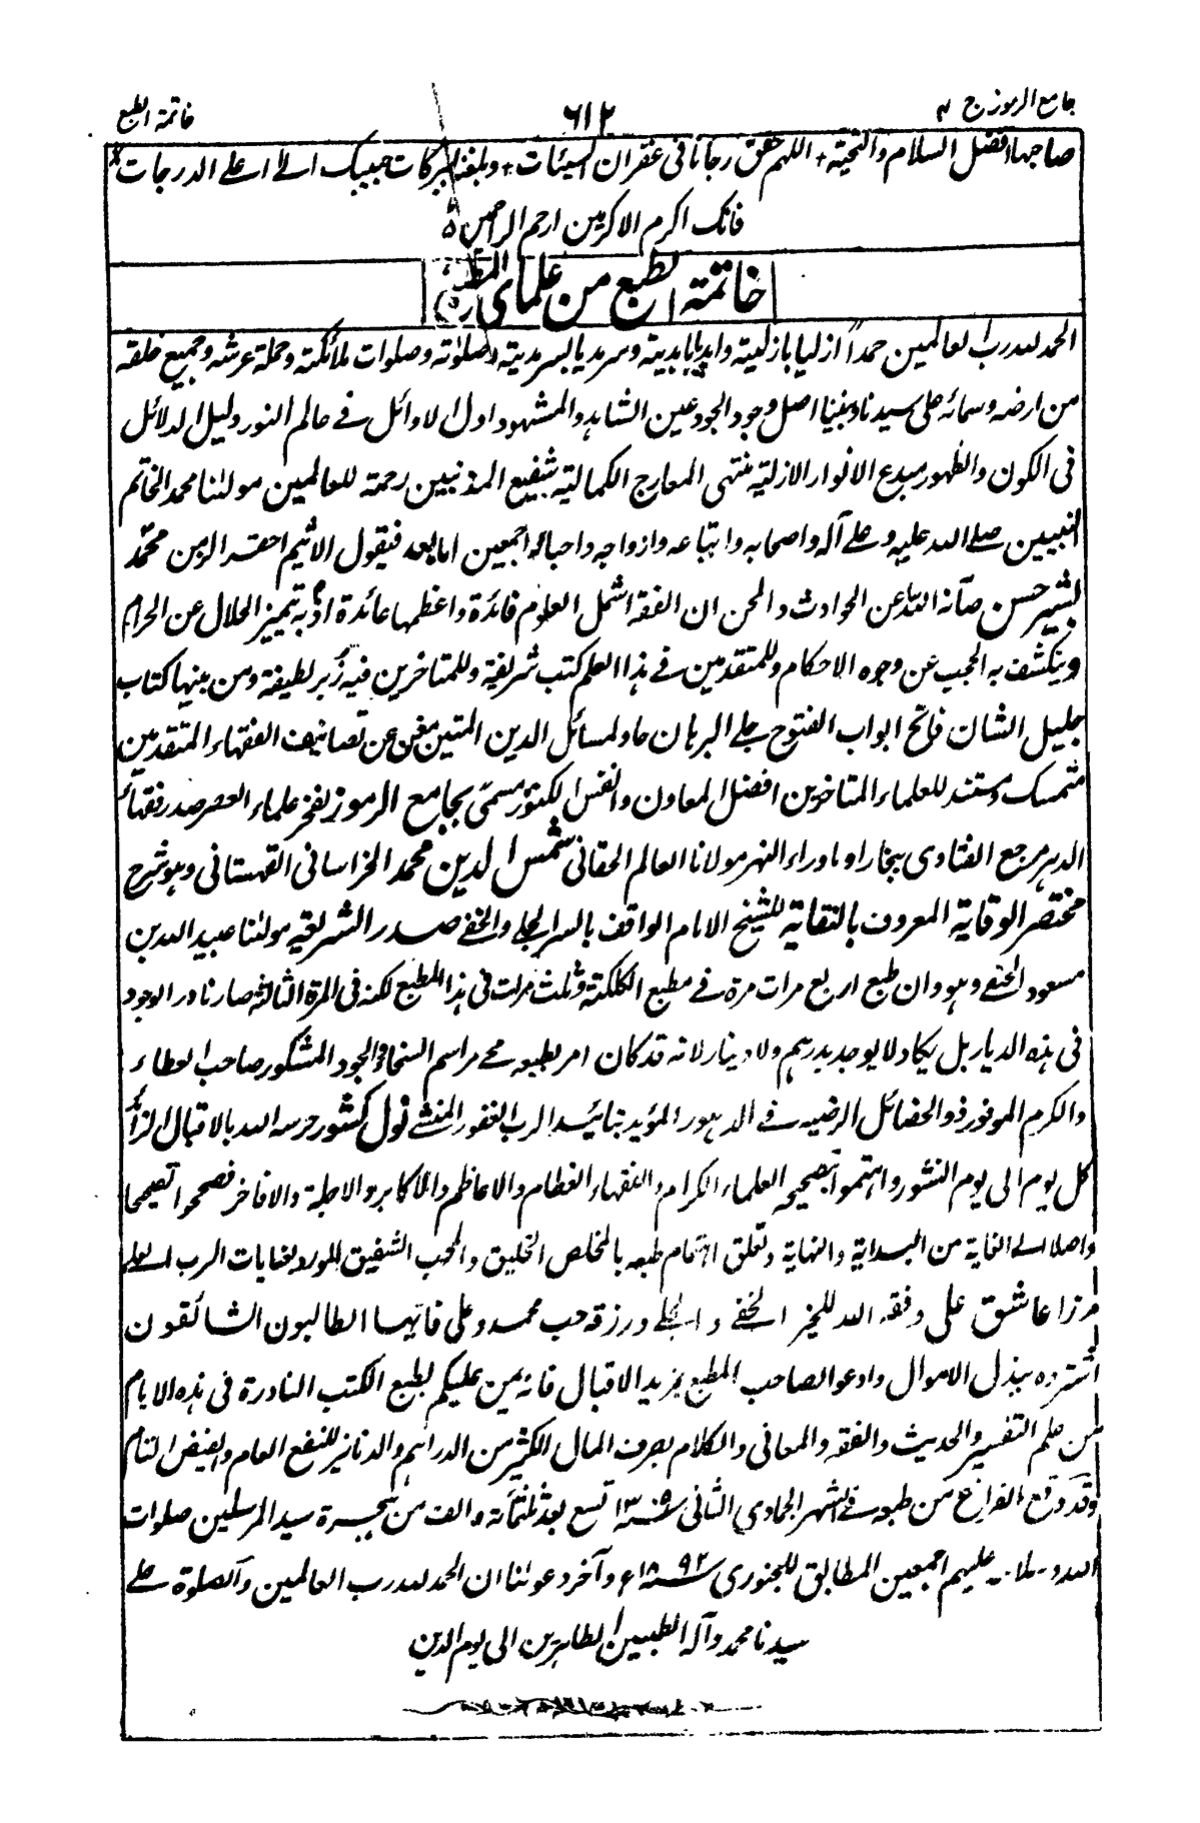 جامع الرموز ج ۴
۶۱۲
خاتمة الطبع
صاحبها افضل السلام والتحية + اللهم حقق رجانا فى غفران السيئات + وبلغنا ببركات حبيبك الى اعلى الدرجات
فانك اكرم الاكرمين ارحم الراحمين
خاتمة الطبع من علماى المطبع
الحمد لله رب العالمين حمداً ازليا بازليته وابديا بابديته وسرمديا بسرمديته وصلوٰته وصلوات ملائكته وحملة عرشه وجميع خلقه
من ارضه وسمائه على سيدنا ونبينا اصل وجود الجود عين الشاهد والمشهود اول الاوائل فى عالم النور دليل الدلائل
فى الكون والظهور مبدع الانوار الازلية منتهى المعارج الكمالية شفيع المذنبين رحمة للعالمين مولٰنا محمد الخاتم
النبيين صلى الله عليه وعلى آله واصحابه واتباعه وازواجه واحبائه اجمعين اما بعد فيقول الاثيم احقر الزمن محمد
بشير حسن صانه الله عن الحوادث والمحن ان الفقه اشمل العلوم فائدة واعظمها عائدة اذ به تميز الحلال عن الحرام
وينكشف به الحجب عن وجوه الاحكام وللمتقدمين فى هذا العلم كتب شريفة وللمتاخرين فيه زبر لطيفة ومن بينها كتاب
جليل الشان فاتح ابواب الفتوح جلى البرهان حاو لمسائل الدين المتين مغن عن تصانيف الفقهاء المتقدمين
متمسك ومستند للعلماء المتاخرين افضل المعادن وانفس الكنوز مسمى بجامع الرموز لفخر علماء العصر صدر فقهاء
الدهر مرجع الفتاوى ببخارا وماوراء النهر مولانا العالم الحقانى شمس الدين محمد الخراسانى القهستانى وهو شرح
مختصر الوقاية المعروف بالنقاية للشيخ الامام الواقف بالسر الجلى والخفى صدر الشريعة مولٰنا عبيد الله بن
مسعود الحنفى وهو وان طبع اربع مرات مرة فى مطبع الكلكته وثلث مرات فى هذا المطبع لكنه فى المرة الثالثة صار نادر الوجود
فى هذه الديار بل يكاد لا يوجد بدرهم ولا دينار لانه قد كان امر بطبعه محى مراسم السخاء والجود المشكور صاحب العطاء
والكرم الموفور ذو الخصائل الرضيه فى الدهور المؤيد بتائيد الرب الغفور المنشى نول كشور حرسه الله بالاقبال الزائد
كل يوم الى يوم النشور واهتموا بتصحيحه العلماء الكرام والفقهاء العظام والاعاظم والاكابر والاجلة والافاخر فصححوا تصحيحا
واصلا الى الغاية من البداية والنهاية وتعلق اهتمام طبعه بالمخلص الخليق والمحب الشفيق المورد بعنايات الرب العلى
مرزا عاشق على وفقه الله للخير الخفى والجلى ورزقه حب محمد وعلى فايها الطالبون الشائقون
اشتروه ببذل الاموال وادعوا لصاحب المطبع بمزيد الاقبال فانه يمن عليكم بطبع الكتب النادرة فى هذه الايام
من علم التفسير والحديث والفقه والمعانى والكلام بصرف المال الكثير من الدراهم والدنانير للنفع العام والفيض التام
وقد وقع الفراغ من طبعه فى اشهر الجمادى الثانى سنه ۱۳۰۹ تسع بعد ثلثمائة والف من هجرة سيد المرسلين صلوات
الله وسلامه عليهم اجمعين المطابق للجنورى سنه ۱۸۹۲ء وآخر دعوٰنا ان الحمد لله رب العالمين والصلوة على
سيدنا محمد وآله الطيبين الطاهرين الى يوم الدين